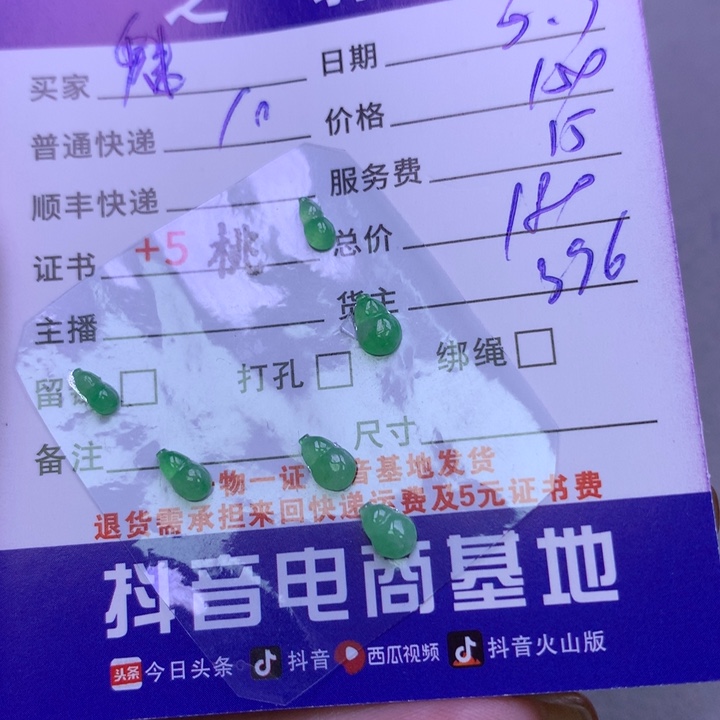 买家 魅 日期 5.5
普通快递 10 价格 150
顺丰快递 服务费 15
证书 +5 桃 总价 180
主播 货主 396
留 打孔 绑绳
备注 尺寸
物一证 音基地发货
退货需承担来回快递运费及5元证书费
抖音电商基地
头条 今日头条 抖音 西瓜视频 抖音火山版